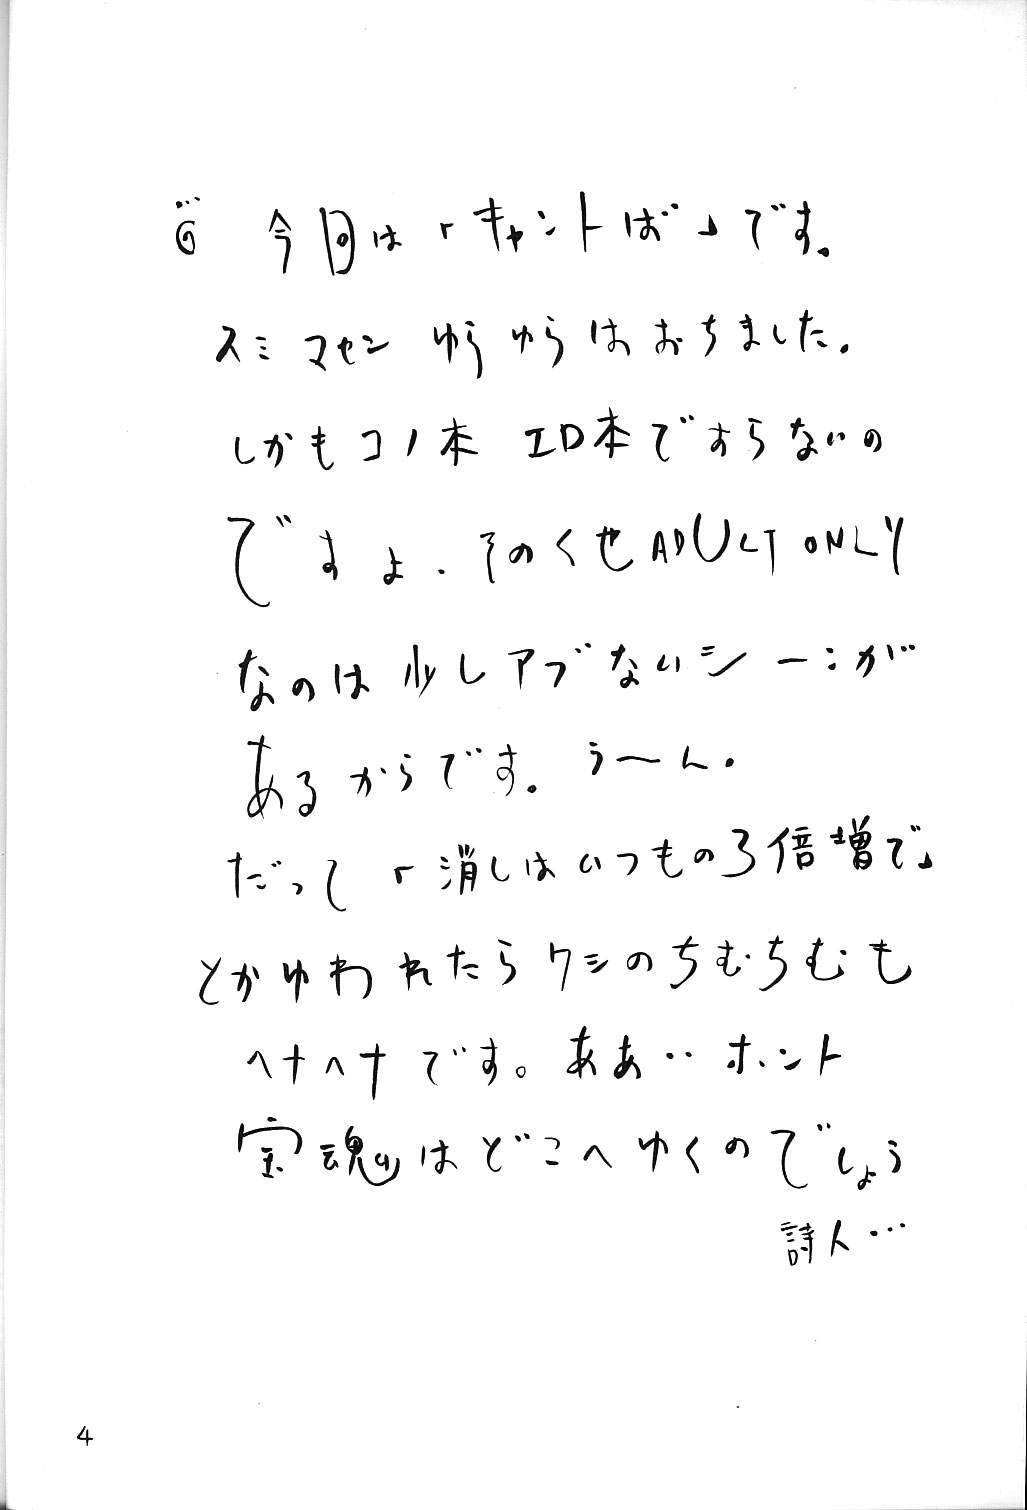 今回は「キャントば」です。
スミマセン ゆらゆらはおちました。
しかもコノ本 エロ本ですらないの
ですよ.そのくせADULT ONLY
なのは少しアブないシーンが
あるからです。うーん.
だって「消しはいつもの3倍増で」
とかゆわれたらワシのちむちむも
ヘナヘナです。ああ‥ホント
宝魂はどこへゆくのでしょう
詩人…
4